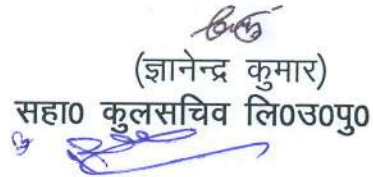 (ज्ञानेन्द्र कुमार)
सहा0 कुलसचिव लि0उ0पु0